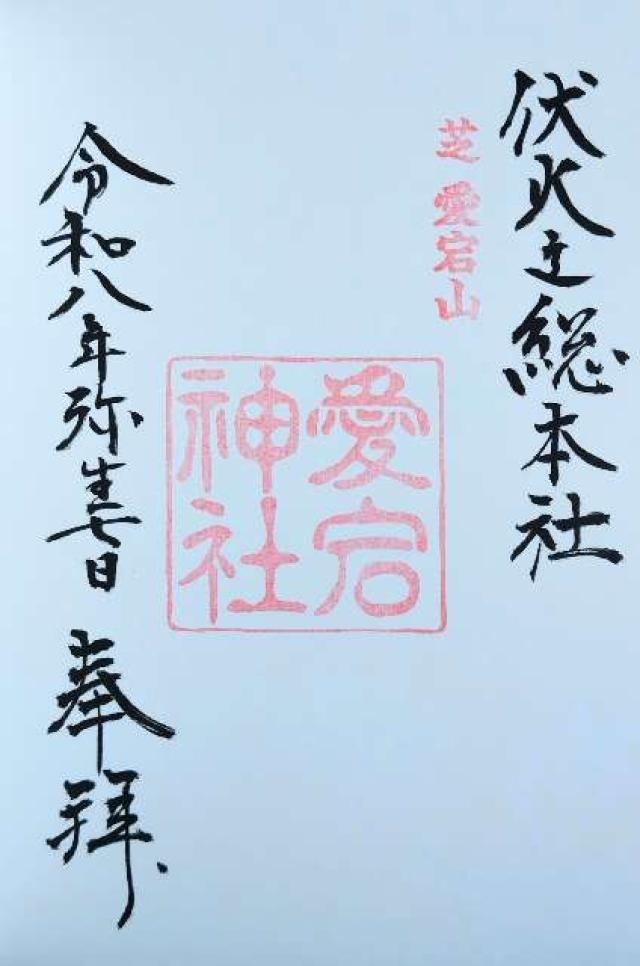 伏火之総本社
芝愛宕山
愛宕
神社
令和八年弥生七日 奉拝